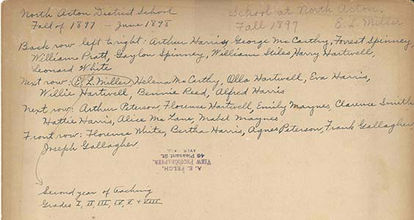 North Acton District School
Fall of 1897 - June 1898
School at North Acton
Fall 1897 E. L. Miller
Back row left to right: Arthur Harris, George McCarthy, Forest Spinney,
William Pratt, Gaylon Spinney, William Stiles, Harry Hartwell,
Leonard White
Next row: E. L. Miller, Helena McCarthy, Alla Hartwell, Eva Harris,
Willie Hartwell, Bennie Reed, Alfred Harris
Next row: Arthur Peterson, Florence Hartwell, Emily Maynes, Clarence Smith
Hattie Harris, Alice McLane, Mabel Maynes
Front row: Florence White, Bertha Harris, Agnes Peterson, Frank Gallagher
Joseph Gallagher
A. E. FELCH,
VIEW PHOTOGRAPHER,
46 Pleasant St.
Second year of teaching
Grades I, II, III, IV, V + VIII